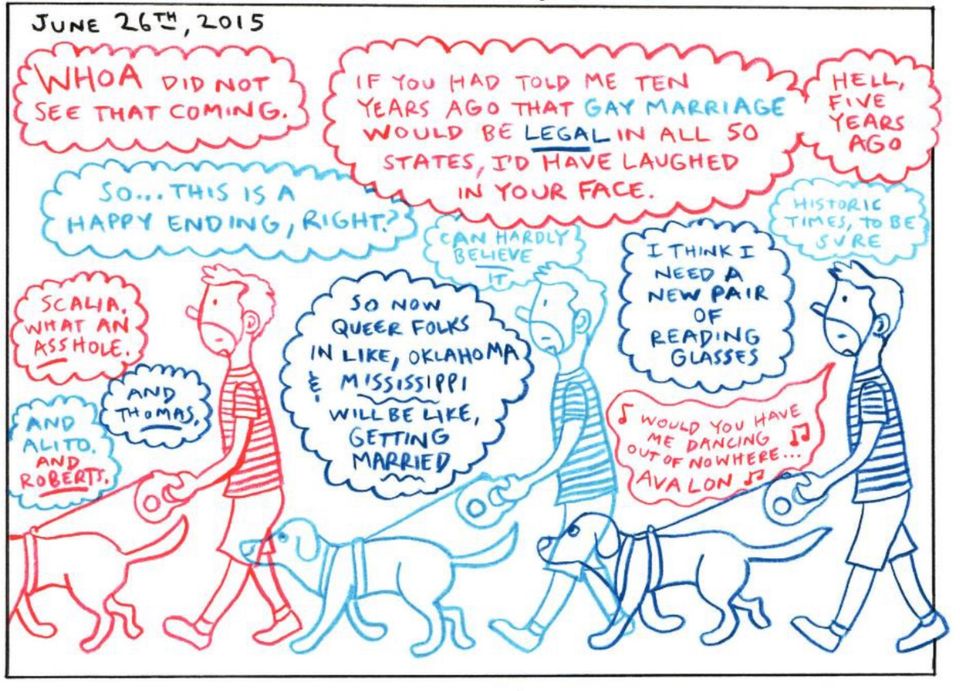 JUNE 26TH, 2015
WHOA DID NOT
SEE THAT COMING.
IF YOU HAD TOLD ME TEN
YEARS AGO THAT GAY MARRIAGE
WOULD BE LEGAL IN ALL 50
STATES, I'D HAVE LAUGHED
IN YOUR FACE.
HELL,
FIVE
YEARS
AGO
SO... THIS IS A
HAPPY ENDING, RIGHT?
CAN HARDLY
BELIEVE
IT
HISTORIC
TIMES, TO BE
SURE
SCALIA.
WHAT AN
ASSHOLE.
AND
THOMAS.
AND
ALITO.
AND
ROBERTS.
SO NOW
QUEER FOLKS
IN LIKE, OKLAHOMA
& MISSISSIPPI
WILL BE LIKE,
GETTING
MARRIED
I THINK I
NEED A
NEW PAIR
OF
READING
GLASSES
♪ WOULD YOU HAVE
ME DANCING ♫
OUT OF NOWHERE...
AVALON ♫